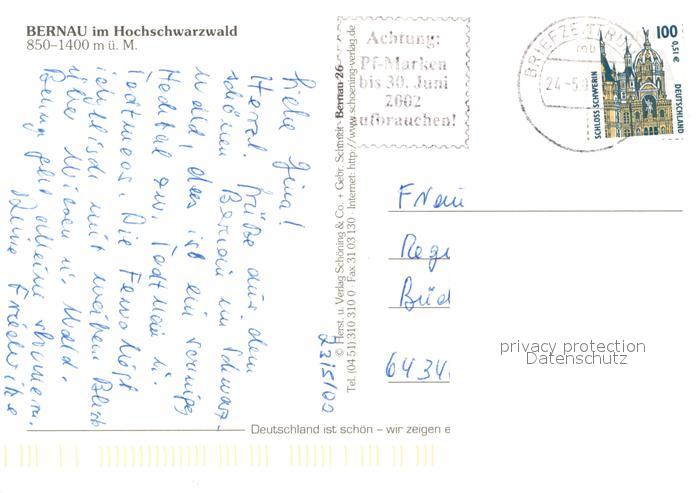 BERNAU im Hochschwarzwald
850–1400 m ü. M.
Achtung:
Pf-Marken
bis 30. Juni
2002
aufbrauchen!
BRIEFZENTRUM
mb
24 -5.0
100
0,51 €
SCHLOSS SCHWERIN
DEUTSCHLAND
23/5/00
Liebe Gina!
Herzl. Grüße aus dem
schönen Bernau im Schwarz-
wald, das ist ein sonniges
Hochtal zw. Todtnau u.
Todtmoos. Die Fewo liegt
idyllisch mit weitem Blick
über Wiesen u. Wald.
Deine Friederike
© Herst. u. Verlag Schöning & Co. + Gebr. Schmidt Bernau 26
Tel. (04 51) 310 310 0 · Fax 31 03 130 · Internet: http://www.schoening-verlag.de
Frau
Regi
Büd
6434
privacy protection
Datenschutz
Deutschland ist schön – wir zeigen e